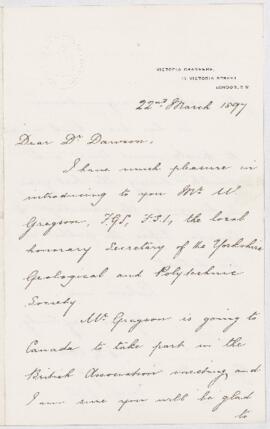 VICTORIA CHAMBERS,
VICTORIA STREET
LONDON, S.W
22nd March 1897
Dear Dr Dawson,
I have much pleasure in
introducing to you Mr W
Grayson, F.G.S, F.S.I, the local
honorary Secretary of the Yorkshire
Geological and Polytechnic
Society
Mr Grayson is going to
Canada to take part in the
British Association meeting and
I am sure you will be glad
to